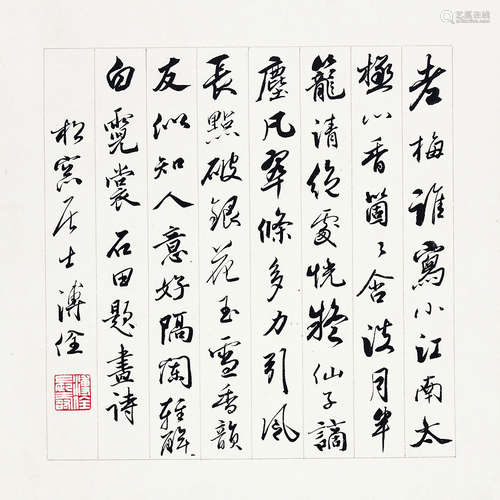 老梅誰寫小江南太
極心香箇〻含淡月半
籠清絶處恍疑仙子謫
塵凡翠條多力引風
長點破銀花玉雪香韻
友似知人意好隔闌輕解
白霓裳石田題畫詩
松窗居士溥佺
溥佺
艺狐在线